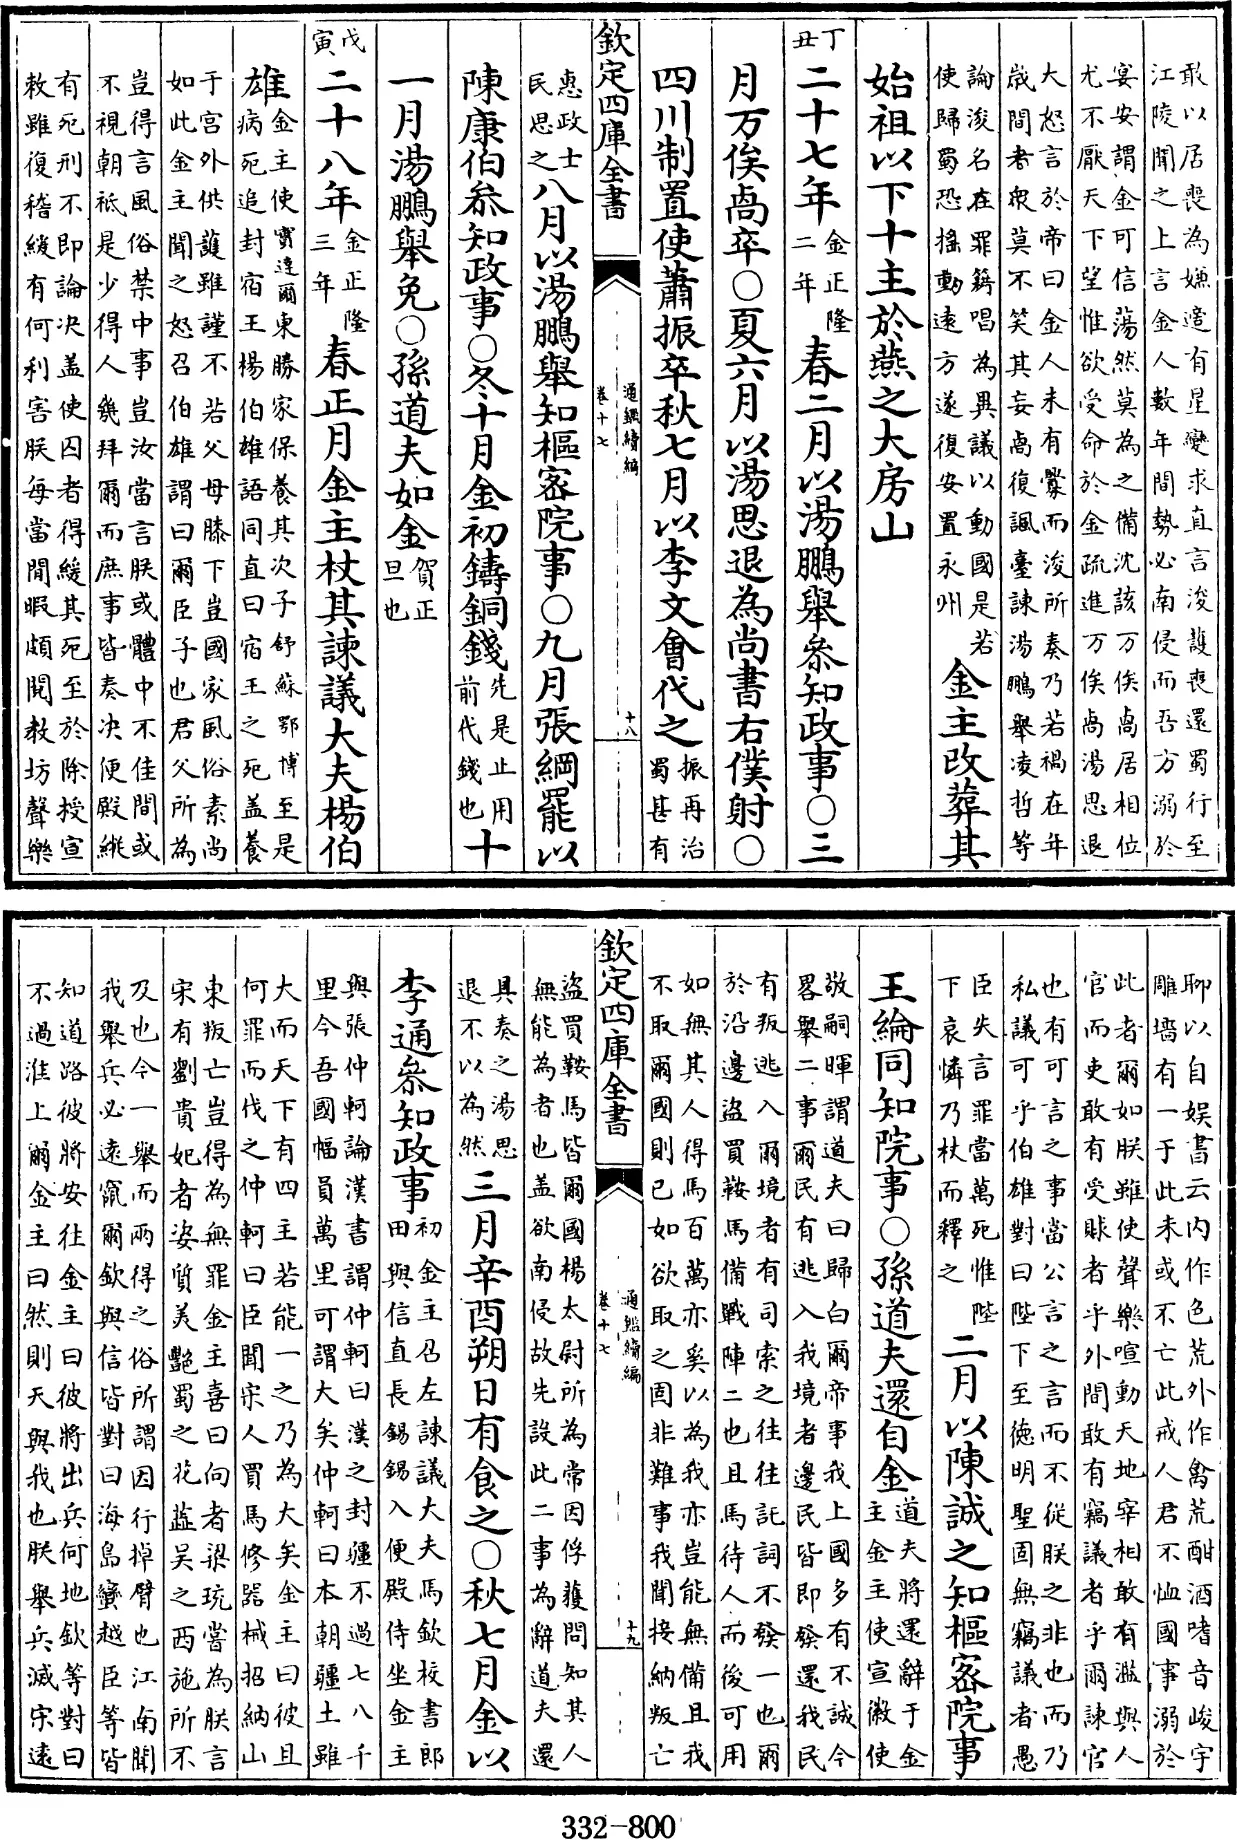 敢以居喪為嫌適有星變求直言浚護喪還蜀行至
江陵聞之上言金人數年間勢必南侵而吾方溺於
宴安謂金可信蕩然莫為之備沈該万俟卨居相位
尤不厭天下望惟欲受命於金疏進万俟卨湯思退
大怒言於帝曰金人未有釁而浚所奏乃若禍在年
歲間者衆莫不笑其妄卨復諷臺諫湯鵬舉凌哲等
論浚名在罪籍唱為異議以動國是若
使歸蜀恐搖動遠方遂復安置永州
金主改葬其
始祖以下十主於燕之大房山
丁丑二十七年金正隆二年春二月以湯鵬舉叅知政事○三
月万俟卨卒○夏六月以湯思退為尚書右僕射○
四川制置使蕭振卒秋七月以李文會代之振再治蜀甚有
欽定四庫全書 通鑑續編 卷十七 十八
惠政士民思之八月以湯鵬舉知樞密院事○九月張綱罷以
陳康伯叅知政事○冬十月金初鑄銅錢先是止用前代錢也十
一月湯鵬舉免○孫道夫如金賀正旦也
戊寅二十八年金正隆三年春正月金主杖其諫議大夫楊伯
雄金主使寶達爾東勝家保養其次子舒蘇鄂博至是
病死追封宿王楊伯雄語同直曰宿王之死盖養
于宮外供護雖謹不若父母膝下豈國家風俗素尚
如此金主聞之怒召伯雄謂曰爾臣子也君父所為
豈得言風俗禁中事豈汝當言朕或體中不佳間或
不視朝祗是少得人幾拜爾而庶事皆奏决便殿縱
有死刑不即論决盖使囚者得緩其死至於除授宣
敕雖復稽緩有何利害朕每當閒暇頗閱教坊聲樂
聊以自娱書云内作色荒外作禽荒酣酒嗜音峻宇
雕墻有一于此未或不亡此戒人君不恤國事溺於
此者爾如朕雖使聲樂喧動天地宰相敢有濫與人
官而吏敢有受賕者乎外間敢有竊議者乎爾諫官
也有可言之事當公言之言而不從朕之非也而乃
私議可乎伯雄對曰陛下至德明聖固無竊議者愚
臣失言罪當萬死惟陛
下哀憐乃杖而釋之
二月以陳誠之知樞密院事
王綸同知院事○孫道夫還自金道夫將還辭于金
主金主使宣徽使
敬嗣暉謂道夫曰歸白爾帝事我上國多有不誠今
畧舉二事爾民有逃入我境者邊民皆即發還我民
有叛逃入爾境者有司索之往往託詞不發一也爾
於沿邊盜買鞍馬備戰陣二也且馬待人而後可用
如無其人得馬百萬亦奚以為我亦豈能無備且我
不取爾國則已如欲取之固非難事我聞接納叛亡
欽定四庫全書 通鑑續編 卷十七 十九
盜買鞍馬皆爾國楊太尉所為常因俘獲問知其人
無能為者也盖欲南侵故先設此二事為辭道夫還
具奏之湯思
退不以為然
三月辛酉朔日有食之○秋七月金以
李通叅知政事初金主召左諫議大夫馬欽校書郎
田與信直長錫錫入便殿侍坐金主
與張仲軻論漢書謂仲軻曰漢之封疆不過七八千
里今吾國幅員萬里可謂大矣仲軻曰本朝疆土雖
大而天下有四主若能一之乃為大矣金主曰彼且
何罪而伐之仲軻曰臣聞宋人買馬修器械招納山
東叛亡豈得為無罪金主喜曰向者梁珫嘗為朕言
宋有劉貴妃者姿質美艷蜀之花蕋吳之西施所不
及也今一舉而兩得之俗所謂因行掉臂也江南聞
我舉兵必遠竄爾欽與信皆對曰海島蠻越臣等皆
知道路彼將安往金主曰彼將出兵何地欽等對曰
不過淮上爾金主曰然則天與我也朕舉兵滅宋遠
332-800